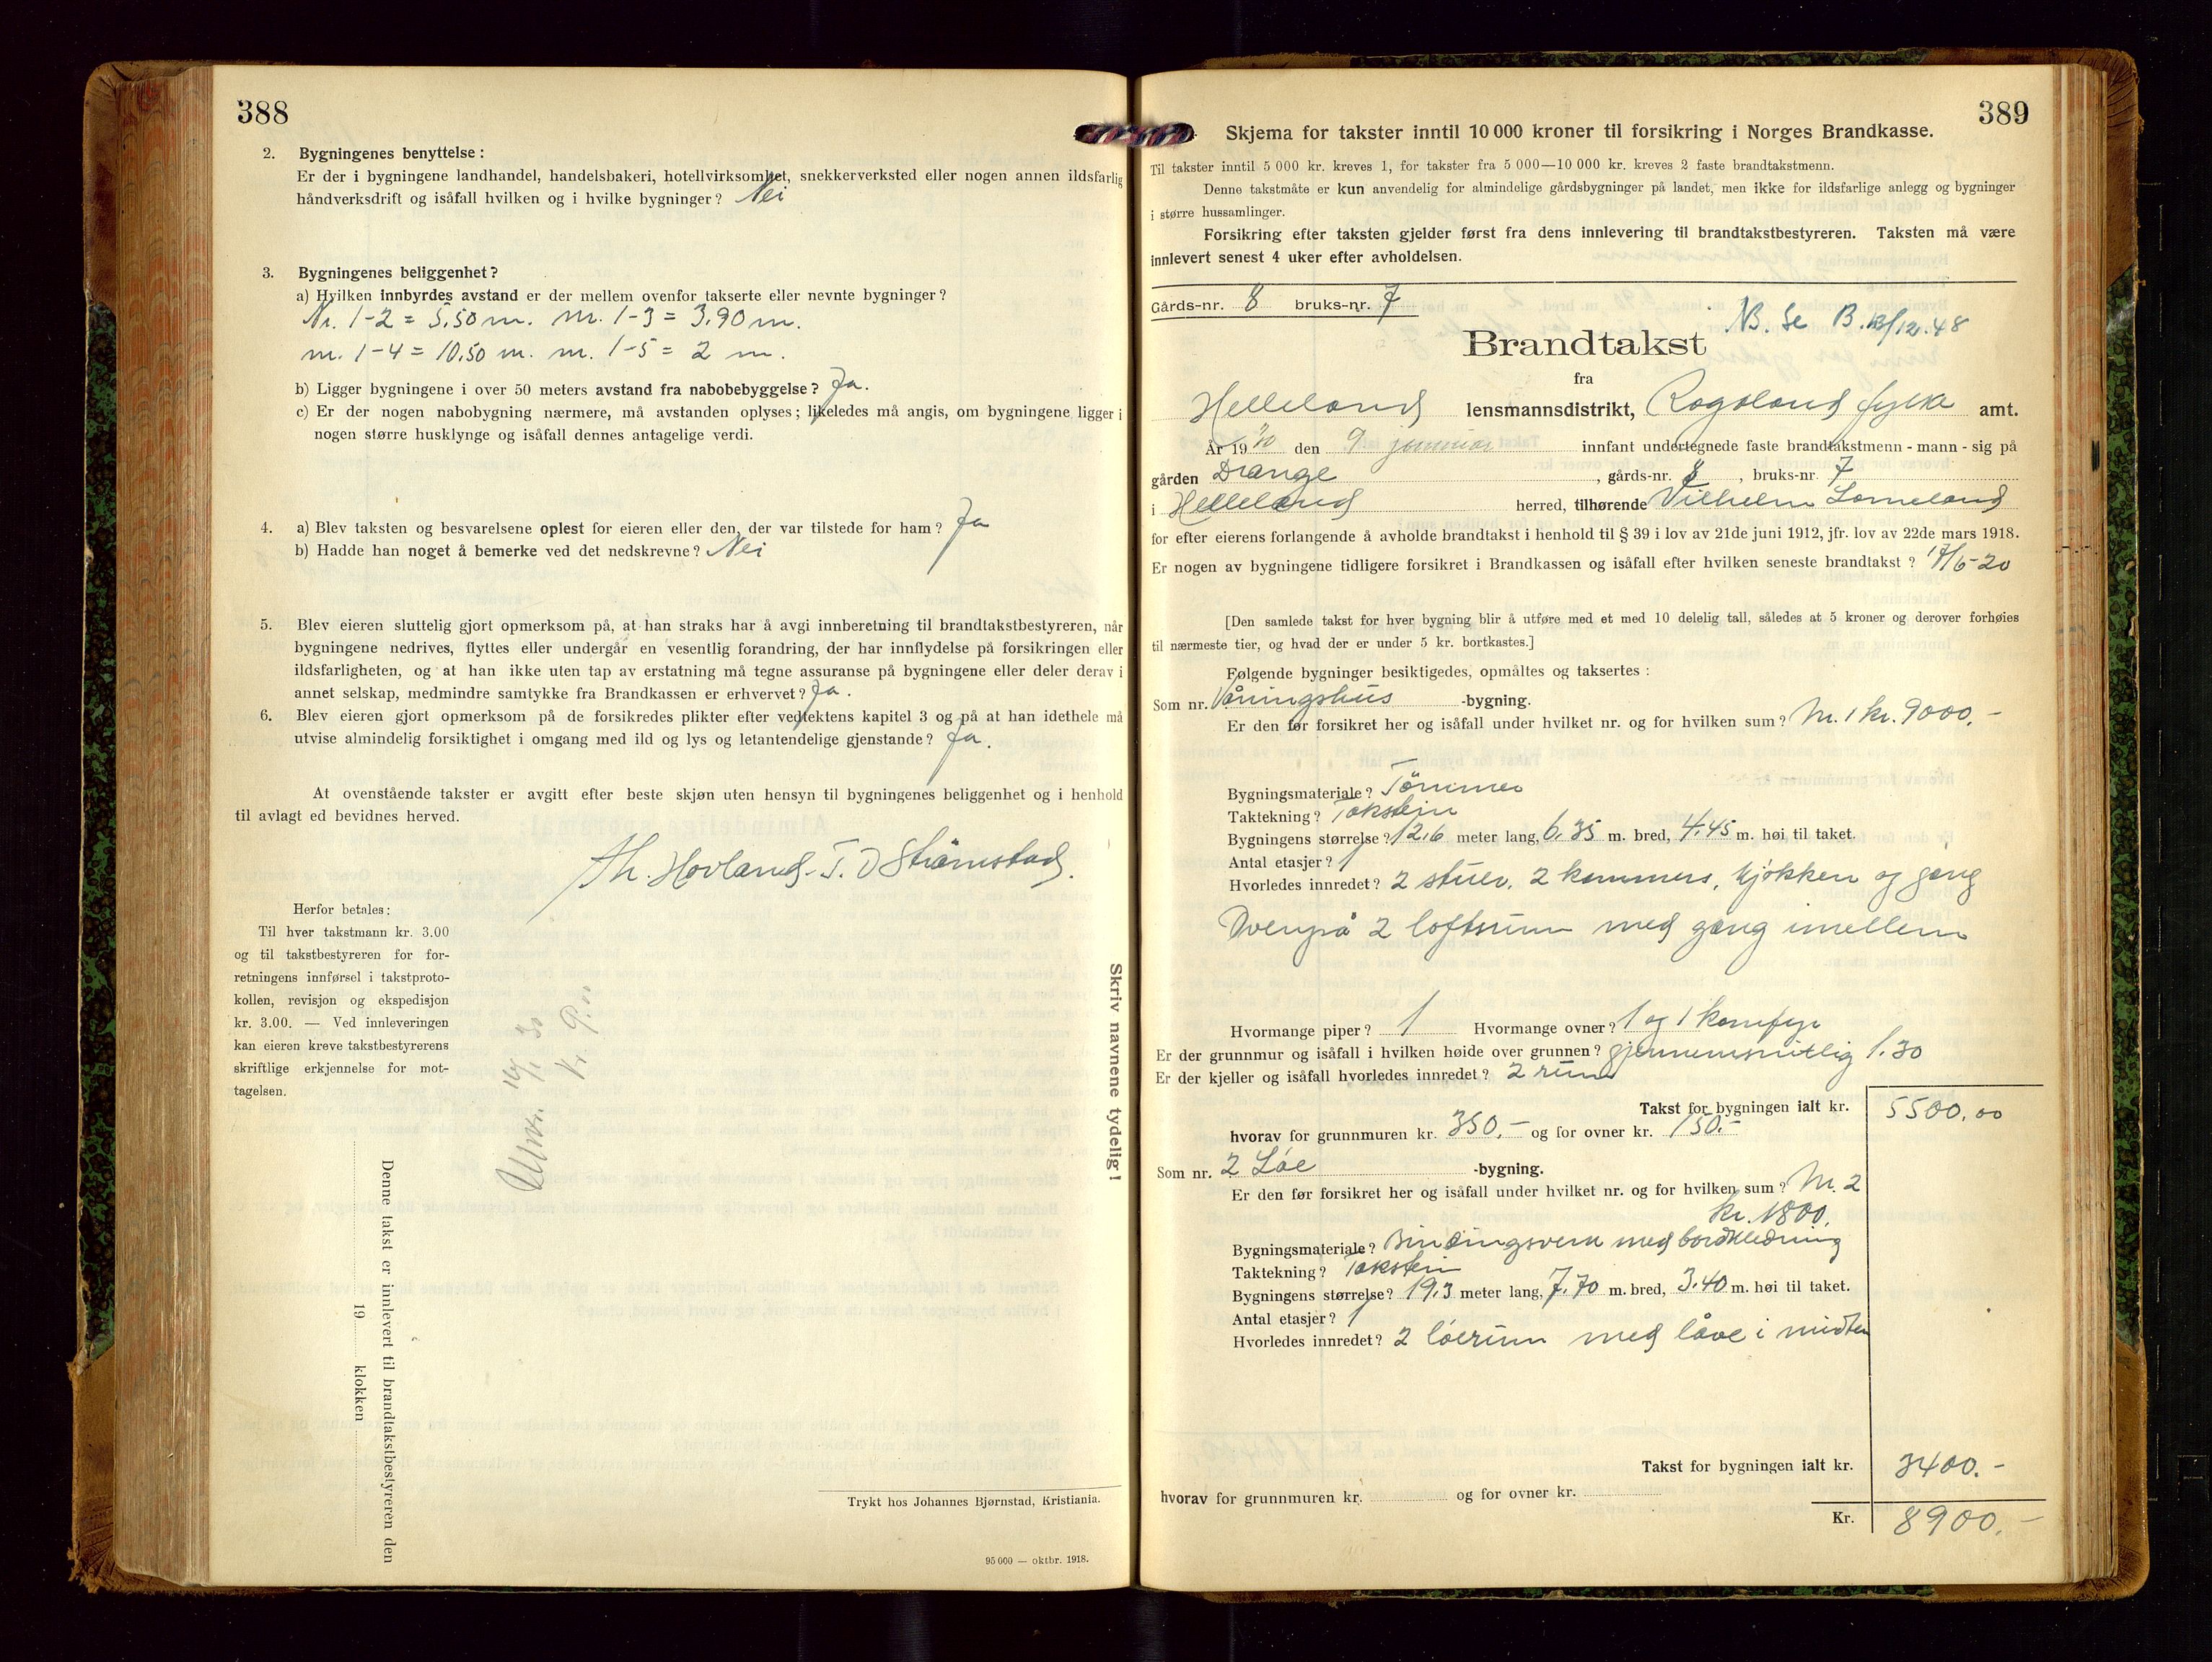 388
2. Bygningenes benyttelse:
Er der i bygningene landhandel, handelsbakeri, hotellvirksomhet, snekkerverksted eller nogen annen ildsfarlig
håndverksdrift og isåfall hvilken og i hvilke bygninger? Nei
3. Bygningenes beliggenhet?
a) Hvilken innbyrdes avstand er der mellem ovenfor takserte eller nevnte bygninger?
Nr. 1-2 = 5,50 m. nr. 1-3 = 3,90 m.
nr. 1-4 = 10,50 m. nr. 1-5 = 2 m.
b) Ligger bygningene i over 50 meters avstand fra nabobebyggelse? Ja.
c) Er der nogen nabobygning nærmere, må avstanden oplyses; likeledes må angis, om bygningene ligger i
nogen større husklynge og isåfall dennes antagelige verdi.
4. a) Blev taksten og besvarelsene oplest for eieren eller den, der var tilstede for ham? Ja
b) Hadde han noget å bemerke ved det nedskrevne? Nei
5. Blev eieren sluttelig gjort opmerksom på, at han straks har å avgi innberetning til brandtakstbestyreren, når
bygningene nedrives, flyttes eller undergår en vesentlig forandring, der har innflydelse på forsikringen eller
ildsfarligheten, og at han ikke uten tap av erstatning må tegne assuranse på bygningene eller deler derav i
annet selskap, medmindre samtykke fra Brandkassen er erhvervet? Ja.
6. Blev eieren gjort opmerksom på de forsikredes plikter efter vedtektens kapitel 3 og på at han idethele må
utvise almindelig forsiktighet i omgang med ild og lys og letantendelige gjenstande? Ja.
At ovenstående takster er avgitt efter beste skjøn uten hensyn til bygningenes beliggenhet og i henhold
til avlagt ed bevidnes herved.
Th. Hovland. T. O Strømstad.
Herfor betales:
Til hver takstmann kr. 3.00
og til takstbestyreren for for-
retningens innførsel i takstproto-
kollen, revisjon og ekspedisjon
kr. 3.00. — Ved innleveringen
kan eieren kreve takstbestyrerens
skriftlige erkjennelse for mot-
tagelsen.
Denne takst er innlevert til brandtakstbestyreren den
19 klokken
Skriv navnene tydelig!
Trykt hos Johannes Bjørnstad, Kristiania.
95 000 — oktbr. 1918.
389
Skjema for takster inntil 10 000 kroner til forsikring i Norges Brandkasse.
Til takster inntil 5 000 kr. kreves 1, for takster fra 5 000—10 000 kr. kreves 2 faste brandtakstmenn.
Denne takstmåte er kun anvendelig for almindelige gårdsbygninger på landet, men ikke for ildsfarlige anlegg og bygninger
i større hussamlinger.
Forsikring efter taksten gjelder først fra dens innlevering til brandtakstbestyreren. Taksten må være
innlevert senest 4 uker efter avholdelsen.
Gårds-nr. 8 bruks-nr. 7
N.B. Se B. 13/12.48
Brandtakst
fra
Helleland lensmannsdistrikt, Rogaland fylke amt.
År 19 den 9 januar innfant undertegnede faste brandtakstmenn - mann - sig på
gården Drange, gårds-nr. 8, bruks-nr. 7
i Helleland herred, tilhørende Vilhelm Lomeland
for efter eierens forlangende å avholde brandtakst i henhold til § 39 i lov av 21de juni 1912, jfr. lov av 22de mars 1918.
Er nogen av bygningene tidligere forsikret i Brandkassen og isåfall efter hvilken seneste brandtakst? 17/6-20
[Den samlede takst for hver bygning blir å utføre med et med 10 delelig tall, således at 5 kroner og derover forhøies
til nærmeste tier, og hvad der er under 5 kr. bortkastes.]
Følgende bygninger besiktigedes, opmåltes og taksertes:
Som nr. Våningshus -bygning.
Er den før forsikret her og isåfall under hvilket nr. og for hvilken sum? Nr. 1 kr. 9000.-
Bygningsmateriale? Tömmer
Taktekning? Takstein
Bygningens størrelse? 12,6 meter lang, 6,35 m. bred, 4,45 m. høi til taket.
Antal etasjer? 1
Hvorledes innredet? 2 stuer, 2 kammers, kjökken og gang
Ovenpå 2 loftsrum med gang imellem
Hvormange piper? 1 Hvormange ovner? 1 og 1 komfyr
Er der grunnmur og isåfall i hvilken høide over grunnen? gjennemsnitlig 1,30
Er der kjeller og isåfall hvorledes innredet? 2 rum
Takst for bygningen ialt kr. 5500,00
hvorav for grunnmuren kr. 350,- og for ovner kr. 150.-
Som nr. 2 Löe -bygning.
Er den før forsikret her og isåfall under hvilket nr. og for hvilken sum? Nr. 2
kr. 1800.
Bygningsmateriale? Bindingsverk med bordkledning
Taktekning? Takstein
Bygningens størrelse? 19,3 meter lang, 7,70 m. bred, 3,40 m. høi til taket.
Antal etasjer? 1
Hvorledes innredet? 2 löerum med låve i midten
Takst for bygningen ialt kr. 3400.-
hvorav for grunnmuren kr. og for ovner kr.
Kr. 8900.-